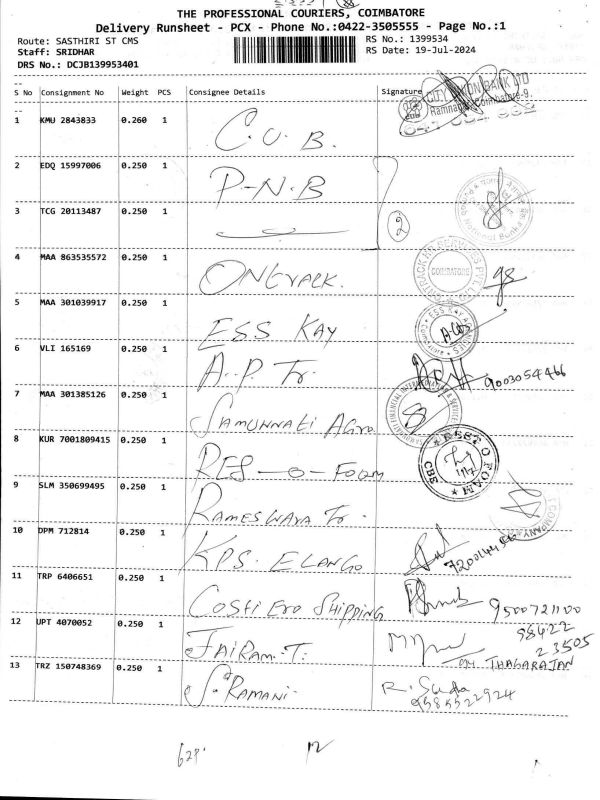 THE PROFESSIONAL COURIERS, COIMBATORE
Delivery Runsheet - PCX - Phone No.:0422-3505555 - Page No.:1
Route: SASTHIRI ST CMS
RS No.: 1399534
Staff: SRIDHAR
RS Date: 19-Jul-2024
DRS No.: DCJB139953401
S No Consignment No Weight PCS Consignee Details Signature
CITY UNION BANK LTD
Ramnagar, Coimbatore-9.
1 KMU 2843833 0.260 1 C.U.B.
2 EDQ 15997006 0.250 1 P-N.B
3 TCG 20113487 0.250 1
2
4 MAA 863535572 0.250 1 ONTRACK.
COIMBATORE
5 MAA 301039917 0.250 1 ESS KAY
6 VLI 165169 0.250 1 A.P. Tr.
9003054466
7 MAA 301385126 0.250 1 SAMUNNATI Agro
8 KUR 7001809415 0.250 1 RES-O-FOAM
REST O FOAM
CBE
9 SLM 350699495 0.250 1 RAMESWARA Tr.
COMPANY
10 DPM 712814 0.250 1 KPS. ELANGO
11 TRP 6406651 0.250 1 COSTI Ero SHIPPING
9500721100
12 UPT 4070052 0.250 1 JAIRAM. T.
98422
23505
THAGARAJAN
13 TRZ 150748369 0.250 1 S. RAMANI.
R. Suda
9585522924